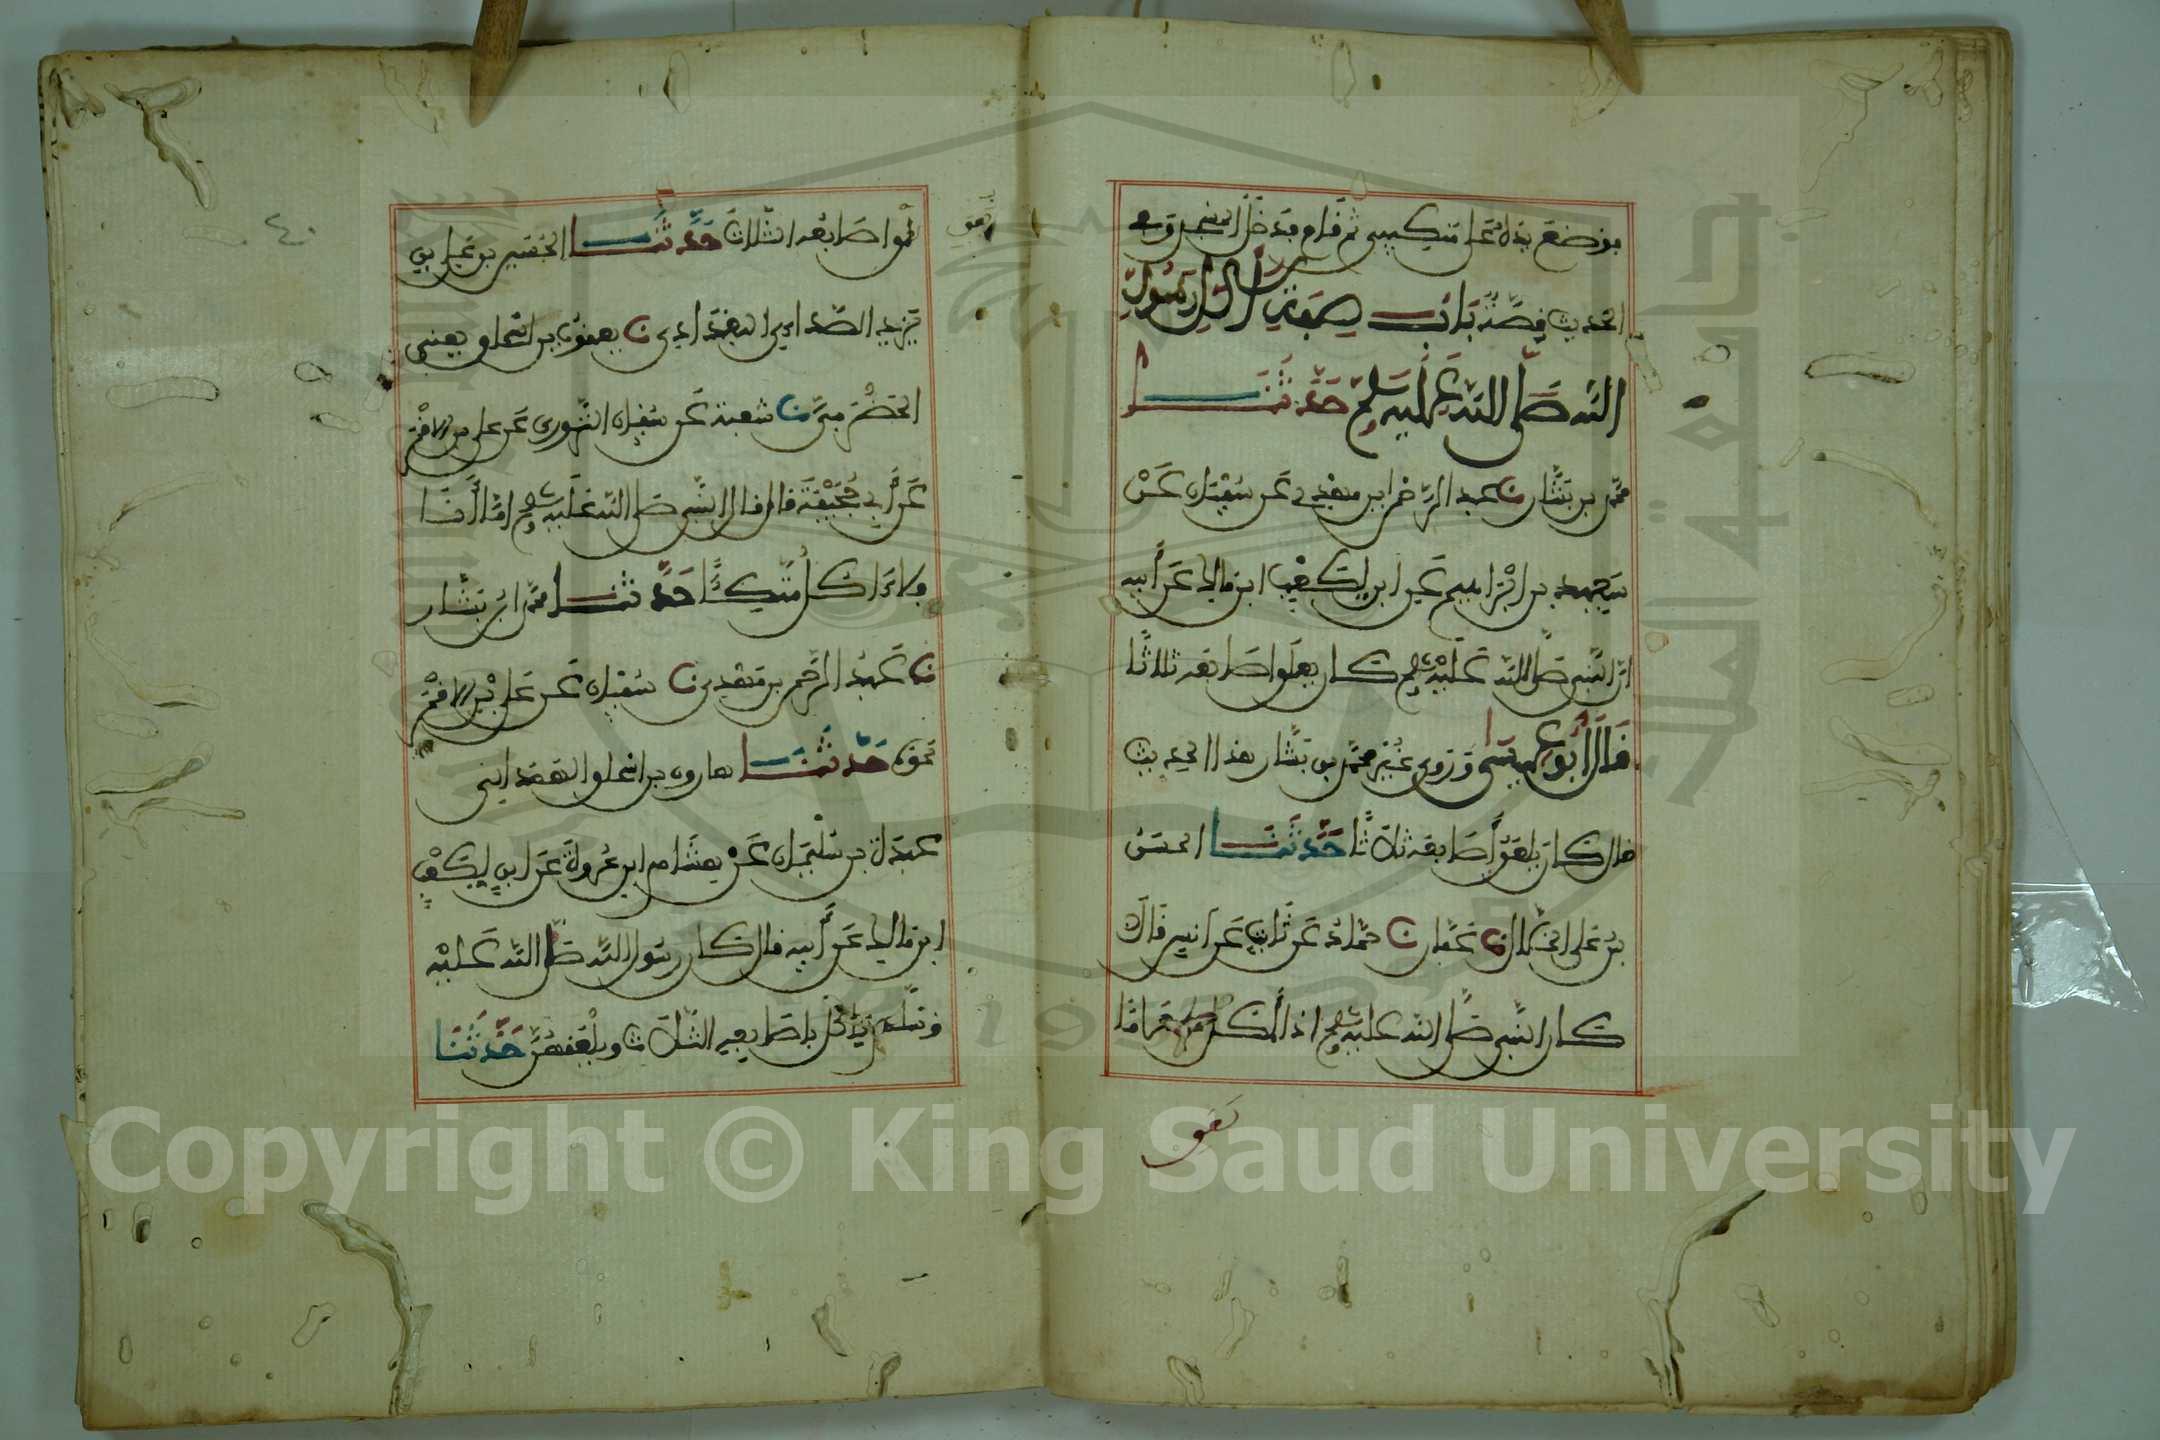 فوضع يده على منكبي ثم قام فدخل المسجد وفي
الحديث قصة باب صفة أكل رسول
الله صلى الله عليه وسلم حدثنا
محمد بن بشار نا عبد الرحمن ابن مهدي عن سفين عن
سعيد بن ابراهيم عن ابن لكعب ابن مالك عن أبيه
ان النبي صلى الله عليه وسلم كان يلعق اصابعه ثلاثا
قال أبو عيسى وروى غير محمد بن بشار هذا الحديث
قال كان يلعق أصابعه ثلاثا حدثنا الحسن
بن علي الخلال نا عفان نا حماد عن ثابت عن أنس قال
كان النبي صلى الله عليه وسلم اذا أكل طعاما
لعق
٤٠
لعق
لعق اصابعه الثلاث حدثنا الحسين بن علي بن
يزيد الصدايي البغدادي نا يعقوب بن اسحاق يعني
الحضرمي نا شعبة عن سفين الثوري عن علي بن الاقمر
عن أبي جحيفة قال قال النبي صلى الله عليه وسلم امّا أنا
فلا ءاكل متكئا حدثنا محمد ابن بشار
نا عبد الرحمن بن مهدي نا سفين عن علي بن الاقمر
نحوه حدثنا هارون بن اسحاق الهمداني
عبدة بن سليمان عن هشام ابن عروة عن ابن لكعب
ابن مالك عن أبيه قال كان رسول الله صلى الله عليه
وسلم ياكل باصابعه الثلاث ويلعقهن حدثنا
Copyright © King Saud University
جامعة الملك
1957